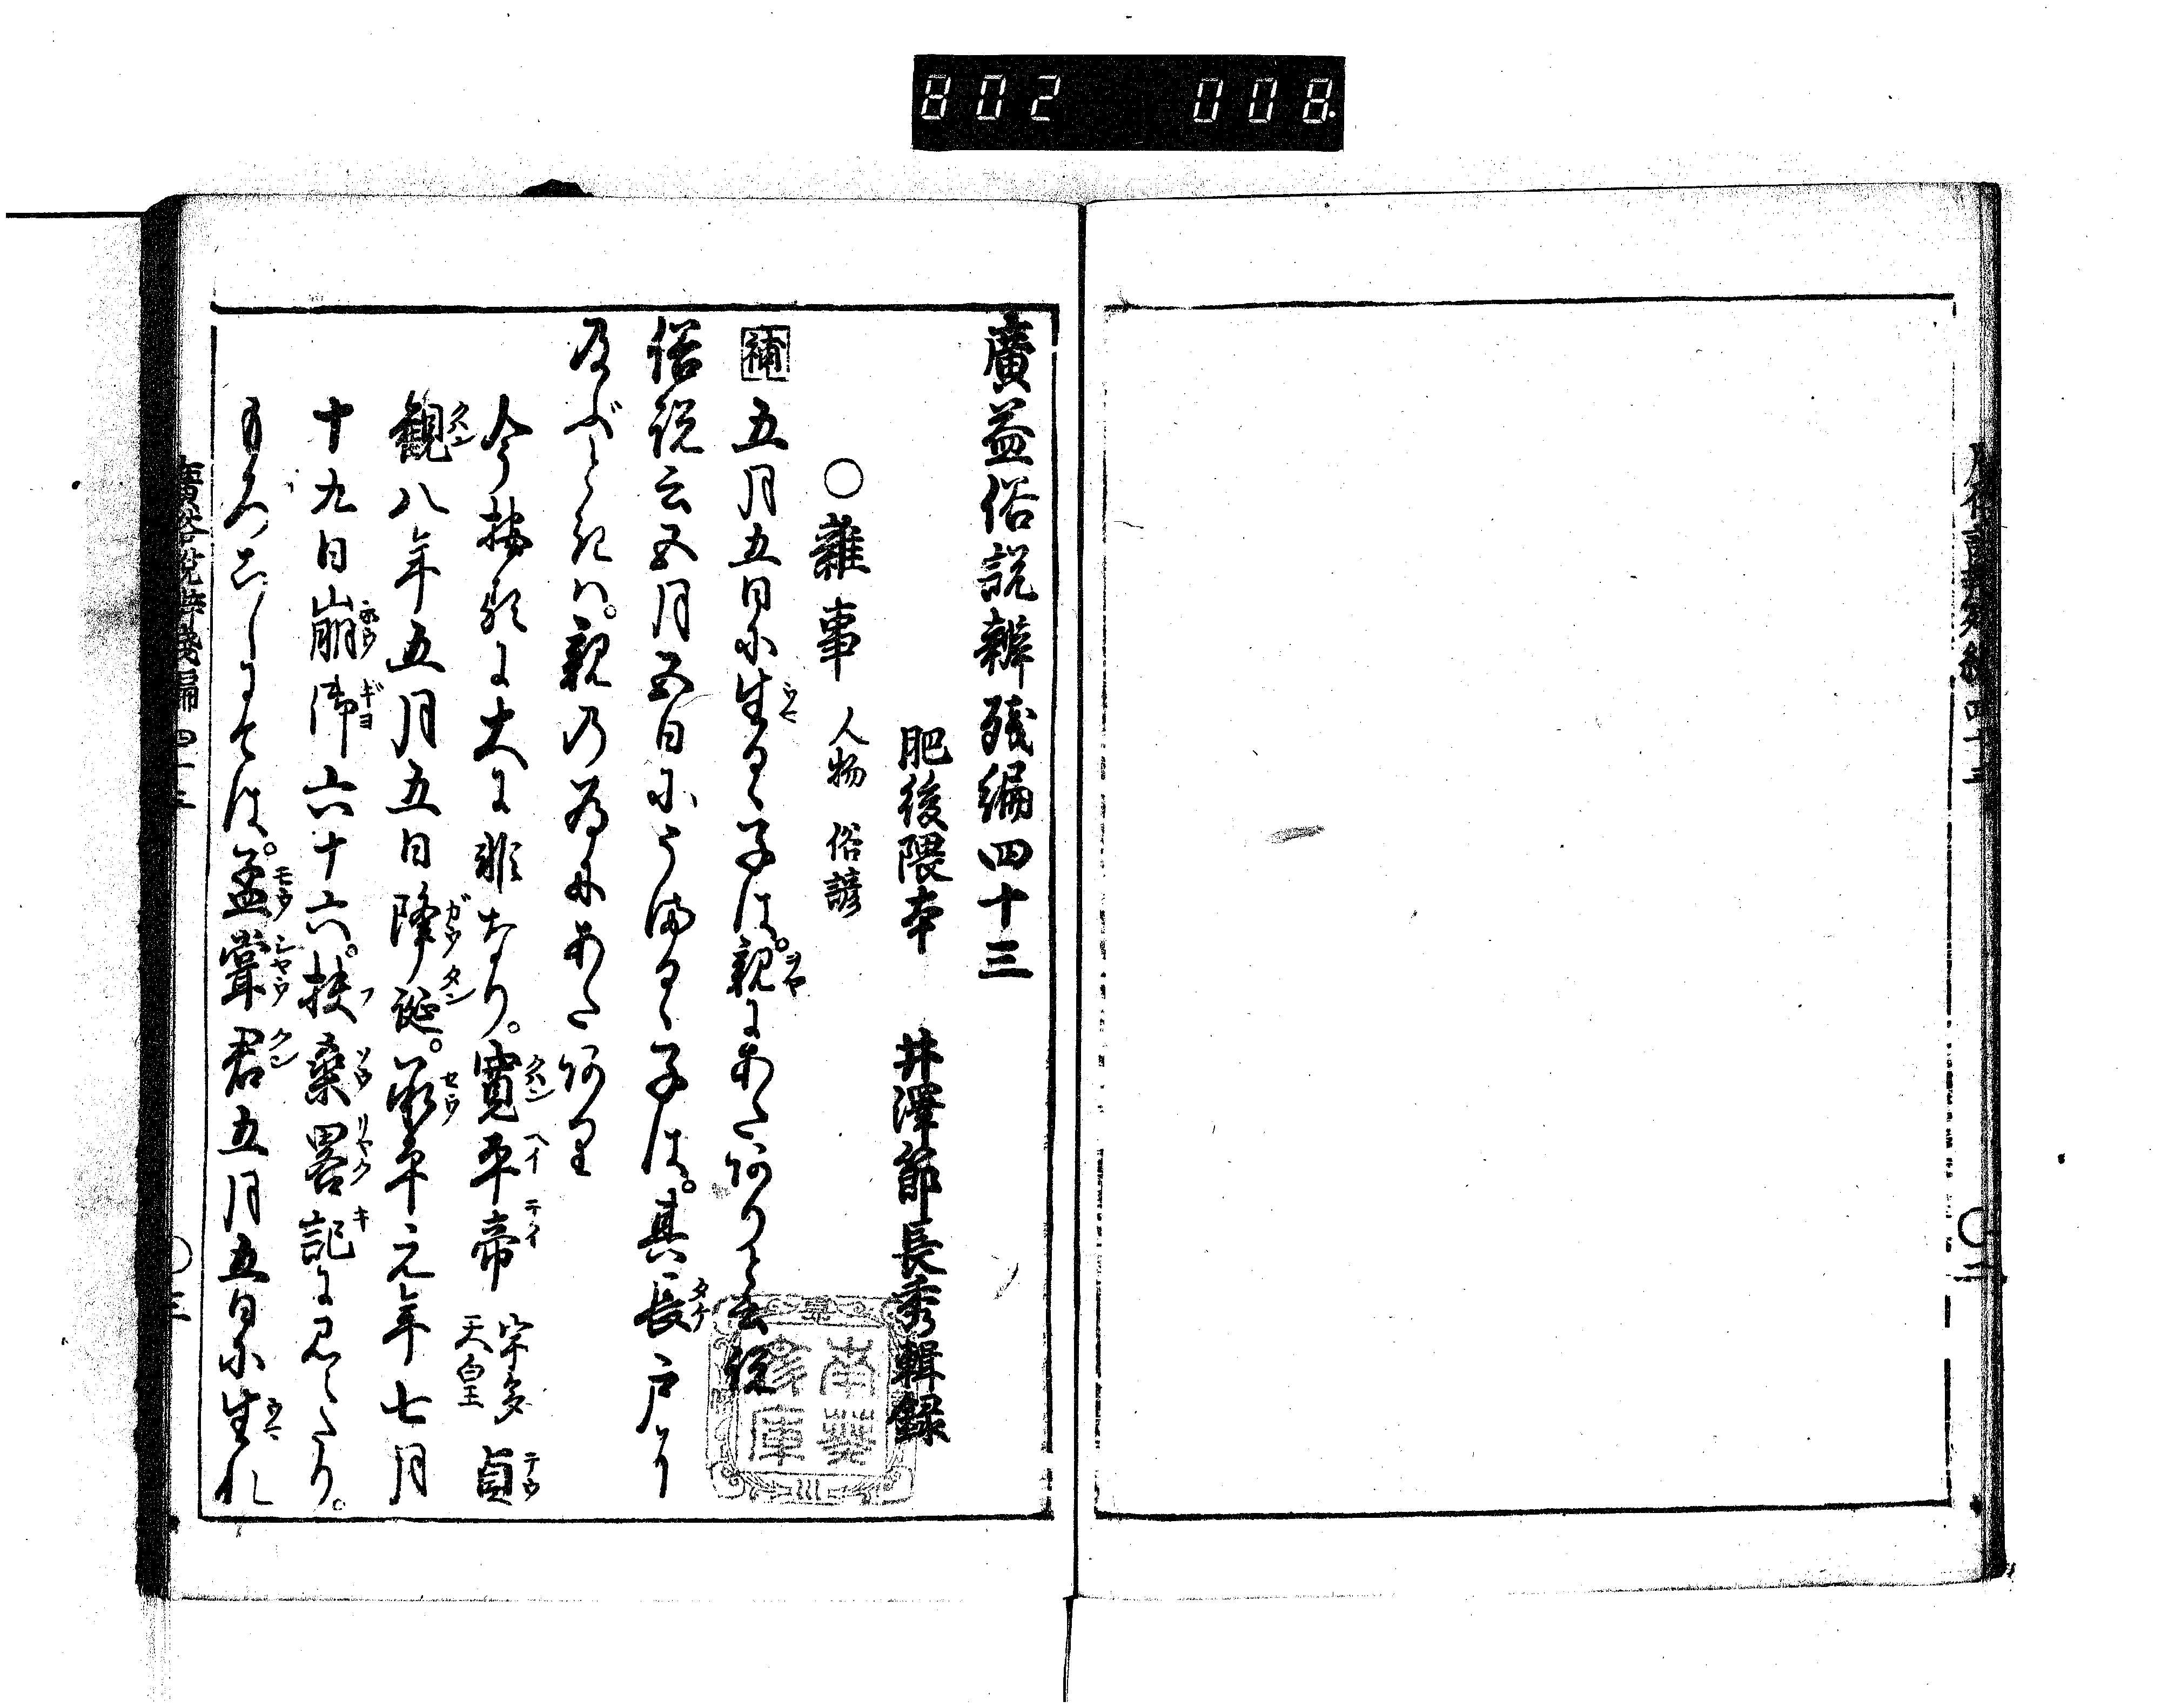 802 008
廣益俗説辨殘編四十三
肥後隈本 井澤節長秀輯録
○雜事 人物 俗諺
補 五月五日に生るゝ子は。親にあたありと云説
俗説云五月五日にうまるゝ子は。其長戸より
及ぶときハ。親乃為にあた有と
今按るに大に非なり。寛平帝 宇多天皇 貞
観八年五月五日降誕。承平元年七月
十九日崩御六十六。扶桑畧記に見えたり。
もろこしにては。孟甞君五月五日に生れ
廣俗説辨殘編 四十三 ○三
南葵文庫